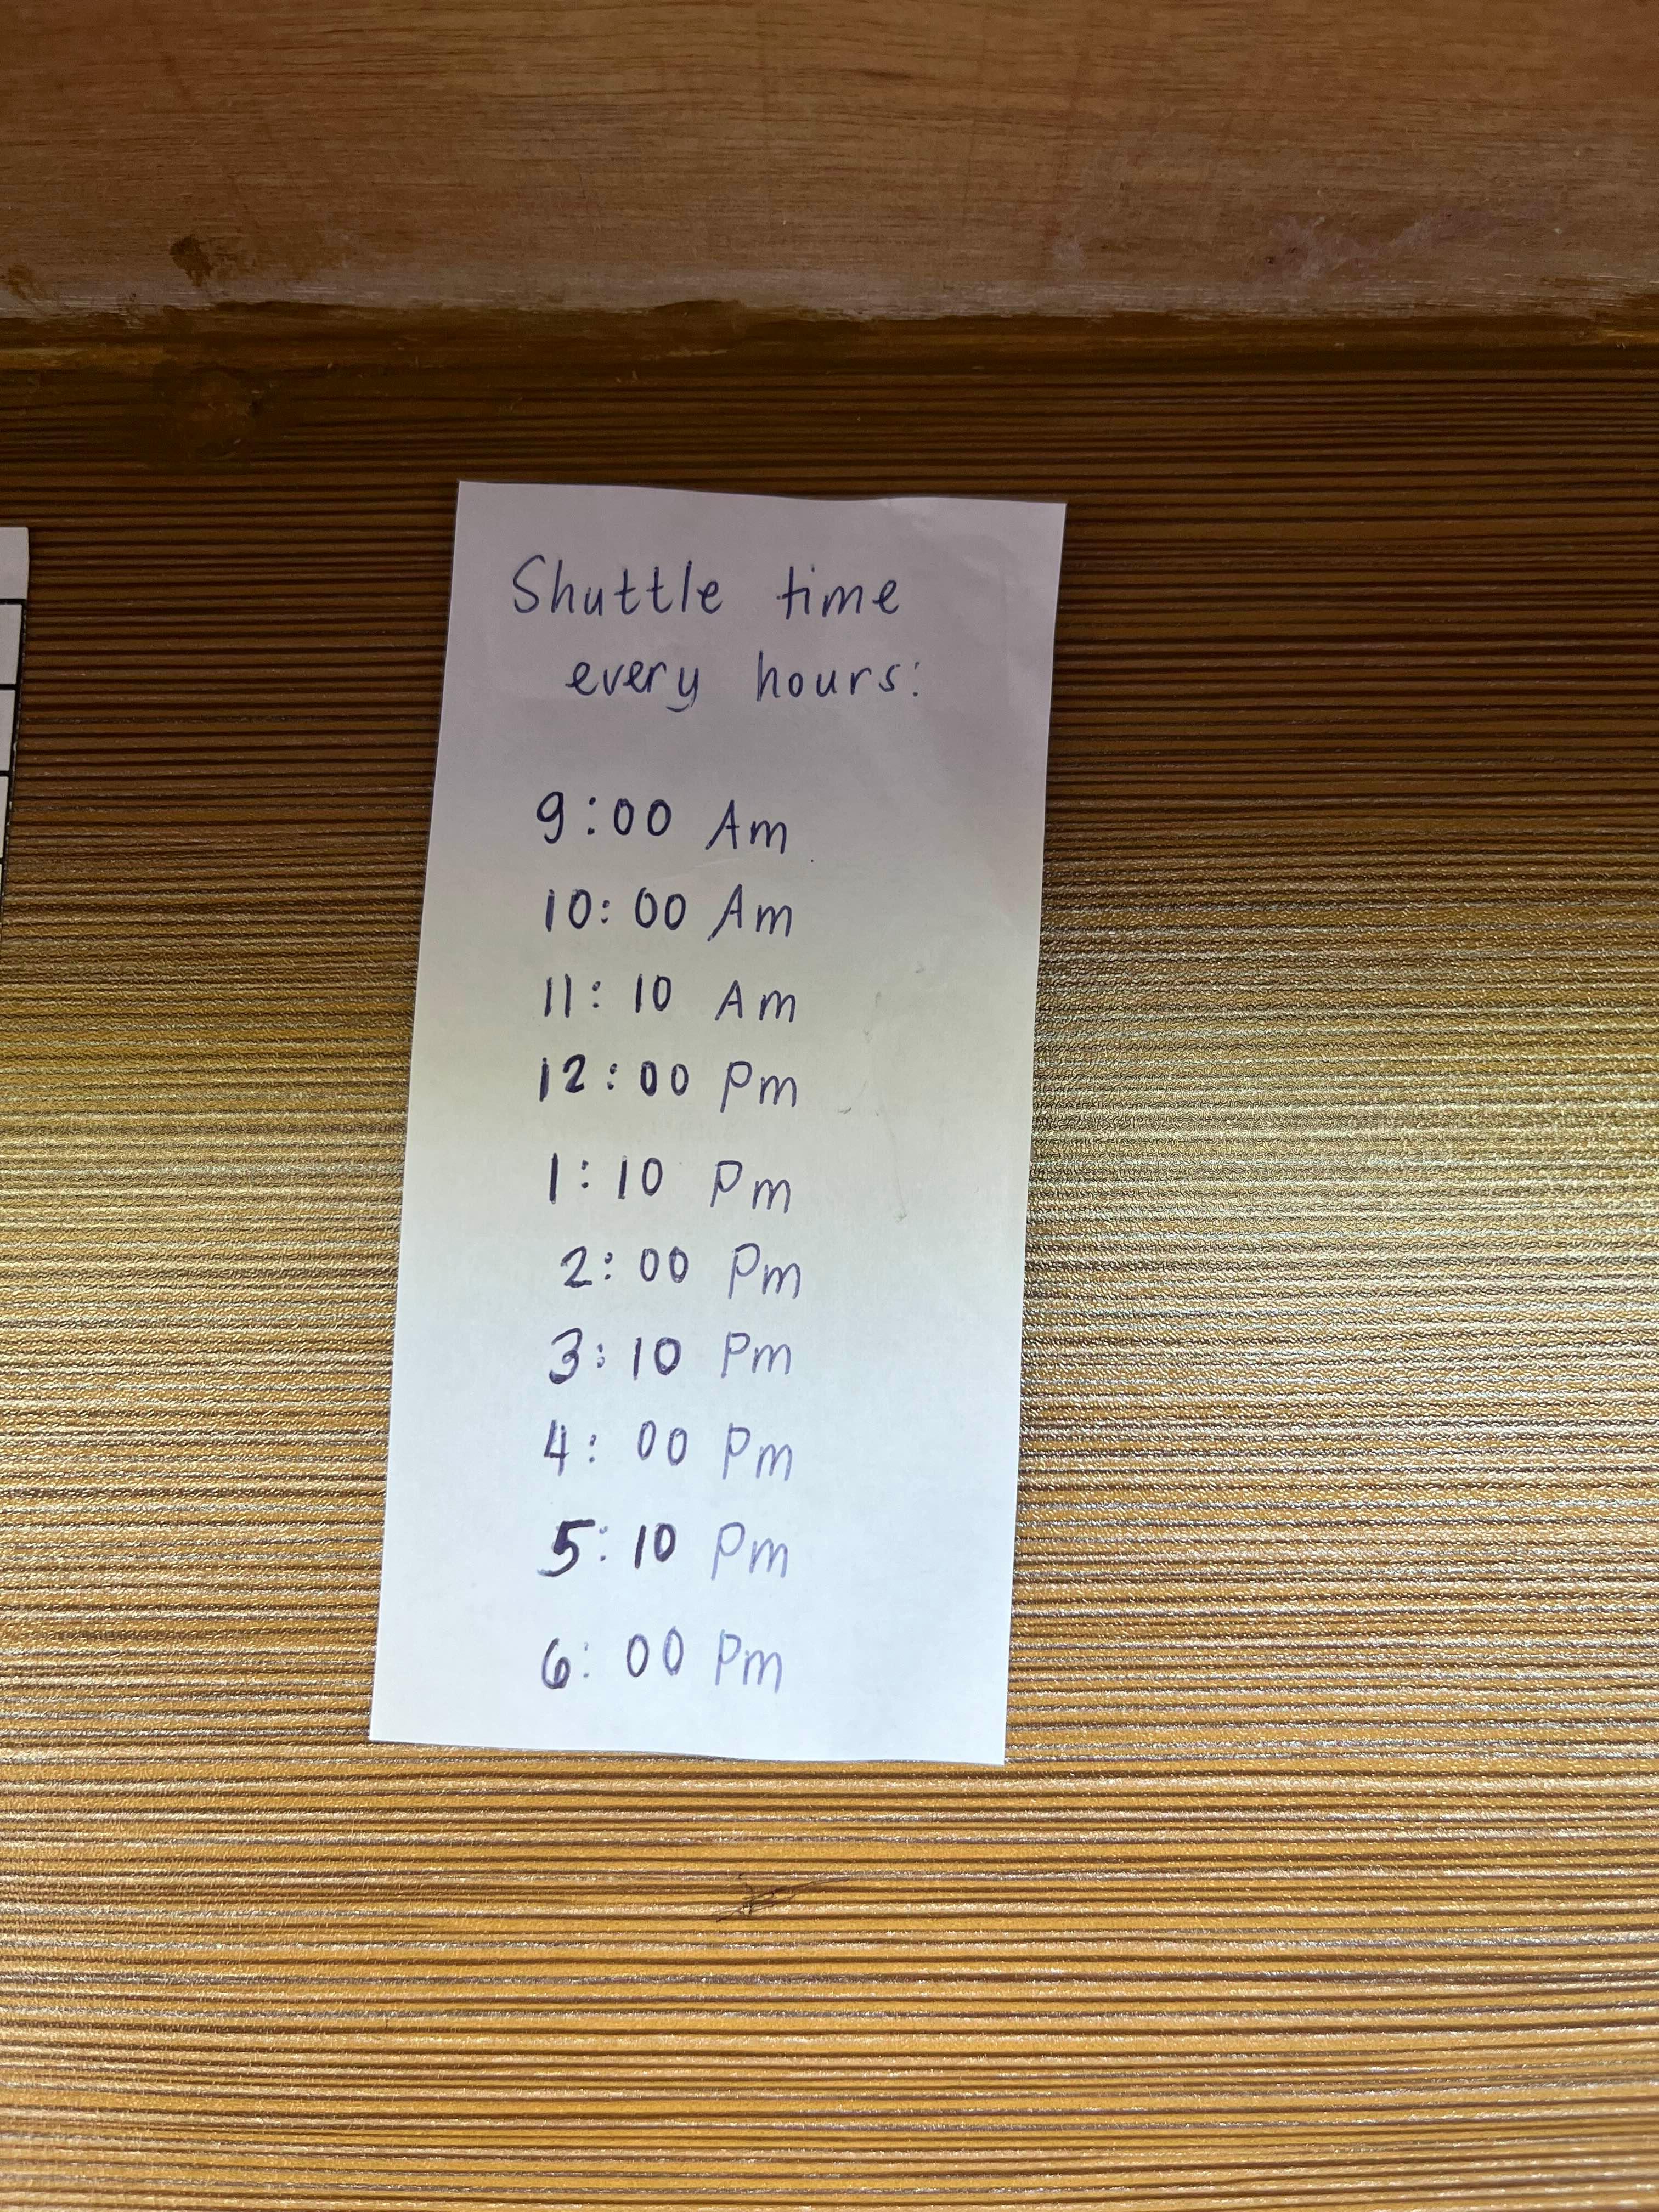 Shuttle time
every hours:
9:00 Am
10:00 Am
11:10 Am
12:00 Pm
1:10 Pm
2:00 Pm
3:10 Pm
4:00 Pm
5:10 Pm
6:00 Pm